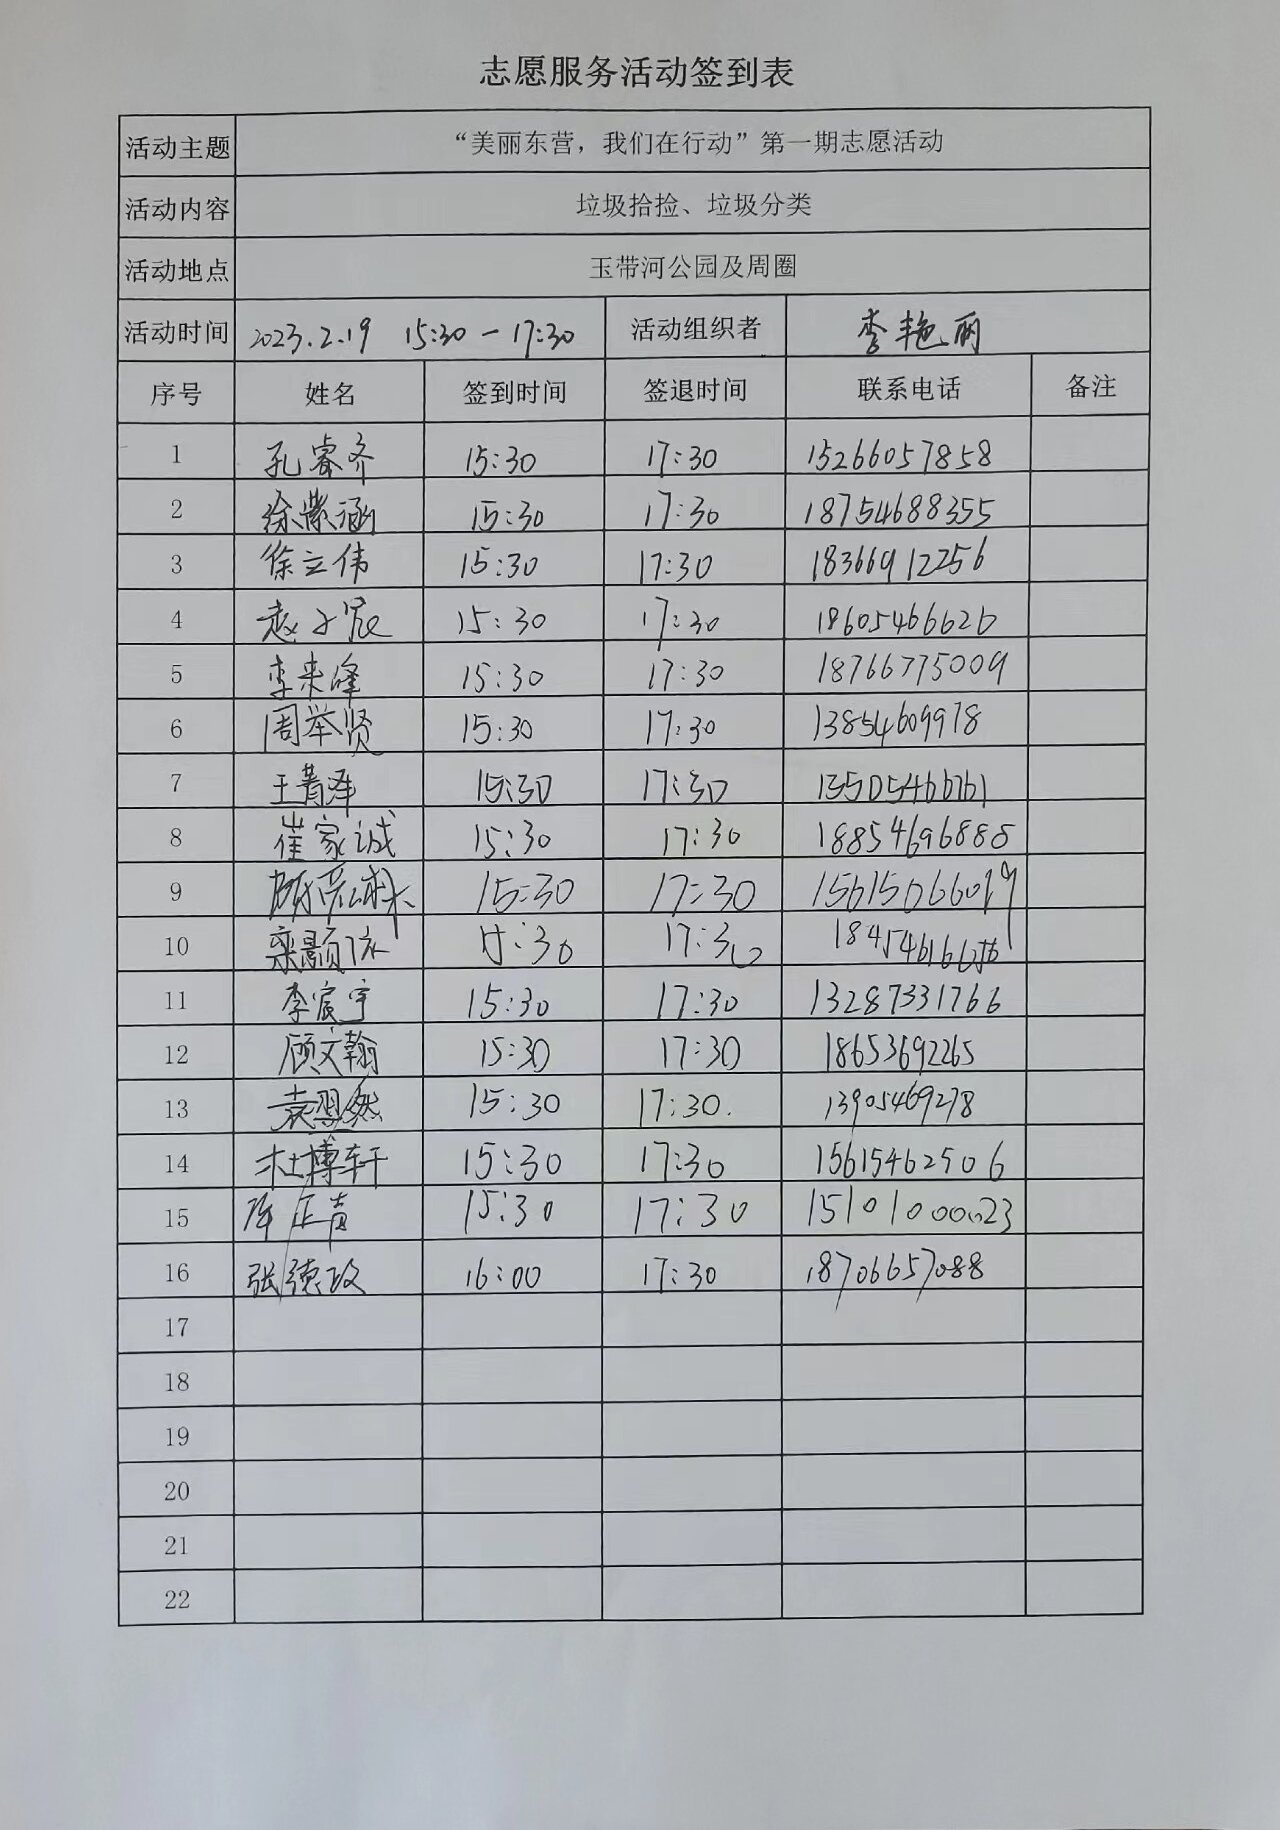 志愿服务活动签到表
活动主题 “美丽东营，我们在行动”第一期志愿活动
活动内容 垃圾拾捡、垃圾分类
活动地点 玉带河公园及周圈
活动时间 2023.2.19 15:30—17:30 活动组织者 李艳丽
序号 姓名 签到时间 签退时间 联系电话 备注
1 孔睿齐 15:30 17:30 15266057858
2 徐紫涵 15:30 17:30 18754688355
3 徐立伟 15:30 17:30 18366912256
4 赵子宸 15:30 17:30 18605466626
5 李来峰 15:30 17:30 18766775009
6 周举贤 15:30 17:30 13854609978
7 王菁泽 15:30 17:30 13505466761
8 崔家诚 15:30 17:30 18854696888
9 15:30 17:30 15615066019
10 栾颢依 15:30 17:30
11 李宸宇 15:30 17:30 13287331766
12 顾文翰 15:30 17:30 18653692265
13 袁翌然 15:30 17:30. 13905469278
14 杜博轩 15:30 17:30 15615462506
15 15:30 17:30 15101000023
16 张德政 16:00 17:30 18706657088
17
18
19
20
21
22